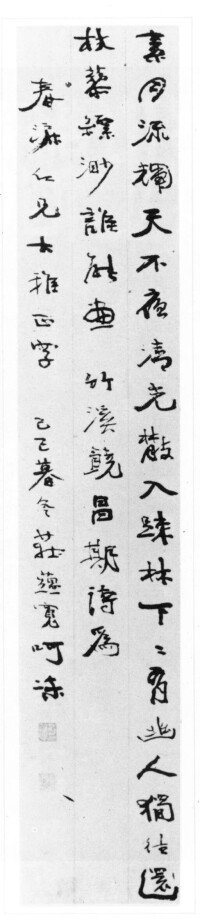 素月流輝天不夜清光散入疎林下〻有幽人獨往還
杖藜縹渺誰能畫 竹溪饒昌期詩為
春澍仁兄大雅正字 己巳暮冬莊蘊寬呵凍